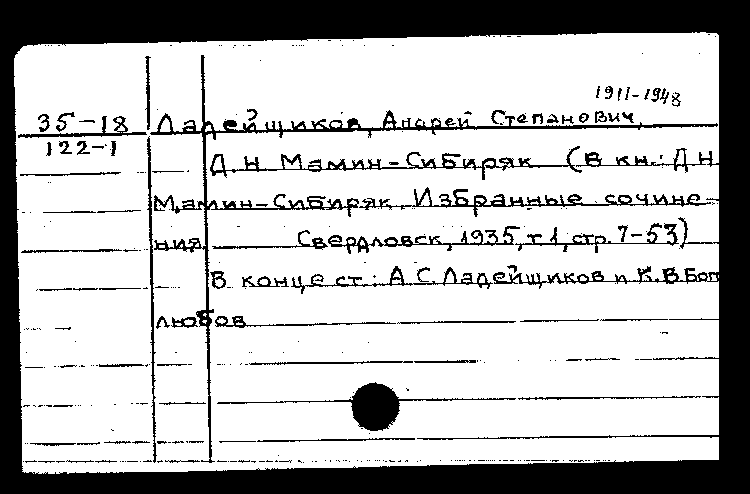 1911-1948
35-18 Ладейщиков, Андрей Степанович,
122-1
Д. Н. Мамин-Сибиряк (В кн.: Д Н
Мамин-Сибиряк. Избранные сочине-
ния. Свердловск, 1935, т 1, стр. 7-53)
В конце ст.: А. С. Ладейщиков и К. В. Бог
любов